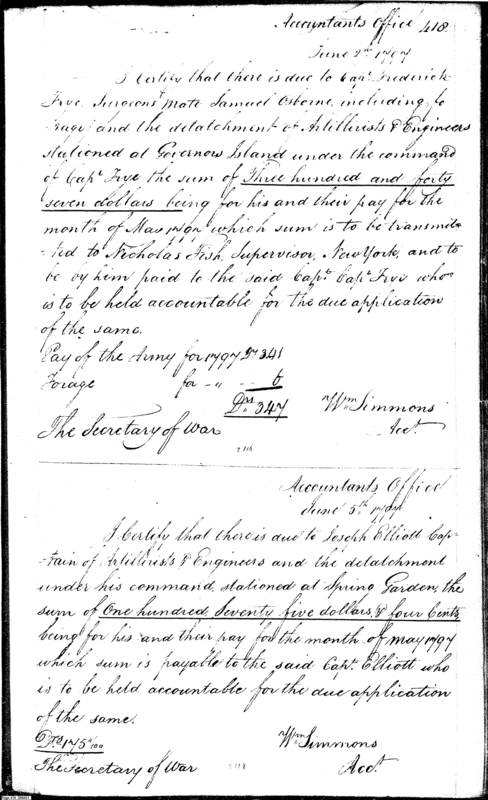 Accountants Office 418.
June 2nd 1797
I Certify that there is due to Capt. Frederick
Frye, Surgeons Mate Samuel Osborne, including fo
rage, and the detatchment of Artillirists & Engineers
stationed at Governors Island under the command
of Capt Frye the sum of Three hundred and forty
seven dollars being for his and their pay for the
month of May 1797, which sum is to be transmit-
-ted to Nicholas Fish, Supervisor, New York, and to
be by him paid to the said Capt. Capt. Frye who
is to be held accountable for the due application
of the same.
Pay of the Army for 1797 Drs 341
Forage for -"- 6
Drs. 347
Wm Simmons
The Secretary of War Acct.
Accountants Office
June 5th 1797
I Certify that there is due to Joseph Elliott Cap-
-tain of Artillirists & Engineers and the detatchment
under his command, stationed at Spring Garden, the
sum of One hundred, Seventy five dollars, & four Cents,
being for his and their pay for the month of May 1797
which sum is payable to the said Capt. Elliott who
is to be held accountable for the due application
of the same.
Drs 175 4/100 Wm Simmons
The Secretary of War Acct.